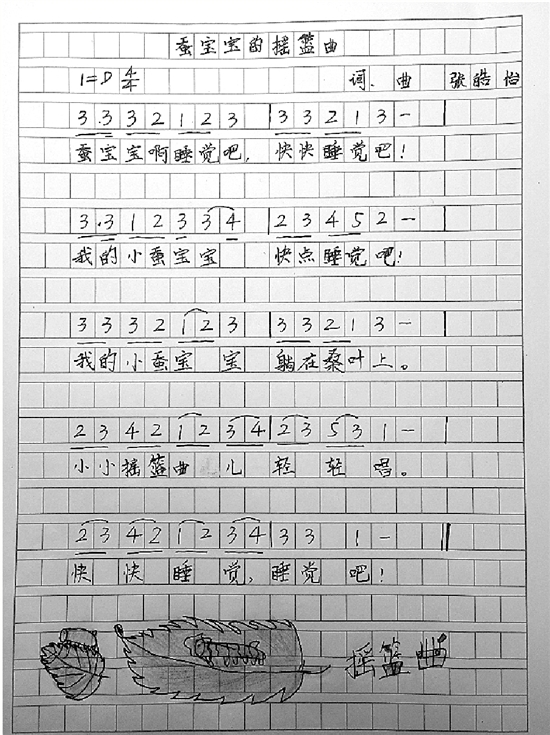 蚕宝宝的摇篮曲
1=D 4/4 词、曲 张皓怡
3.3 3 2 1 2 3 | 3 3 2 1 3 - |
蚕宝宝啊睡觉吧, 快快睡觉吧!
3.3 1 2 3 3 4 | 2 3 4 5 2 - |
我的小蚕宝宝 快点睡觉吧!
3 3 3 2 1 2 3 | 3 3 2 1 3 - |
我的小蚕宝宝 躺在桑叶上。
2 3 4 2 1 2 3 4 | 2 3 5 3 1 - |
小小摇篮曲儿轻轻唱。
2 3 4 2 1 2 3 4 | 3 3 1 - ‖
快快睡觉,睡觉吧!
摇篮曲